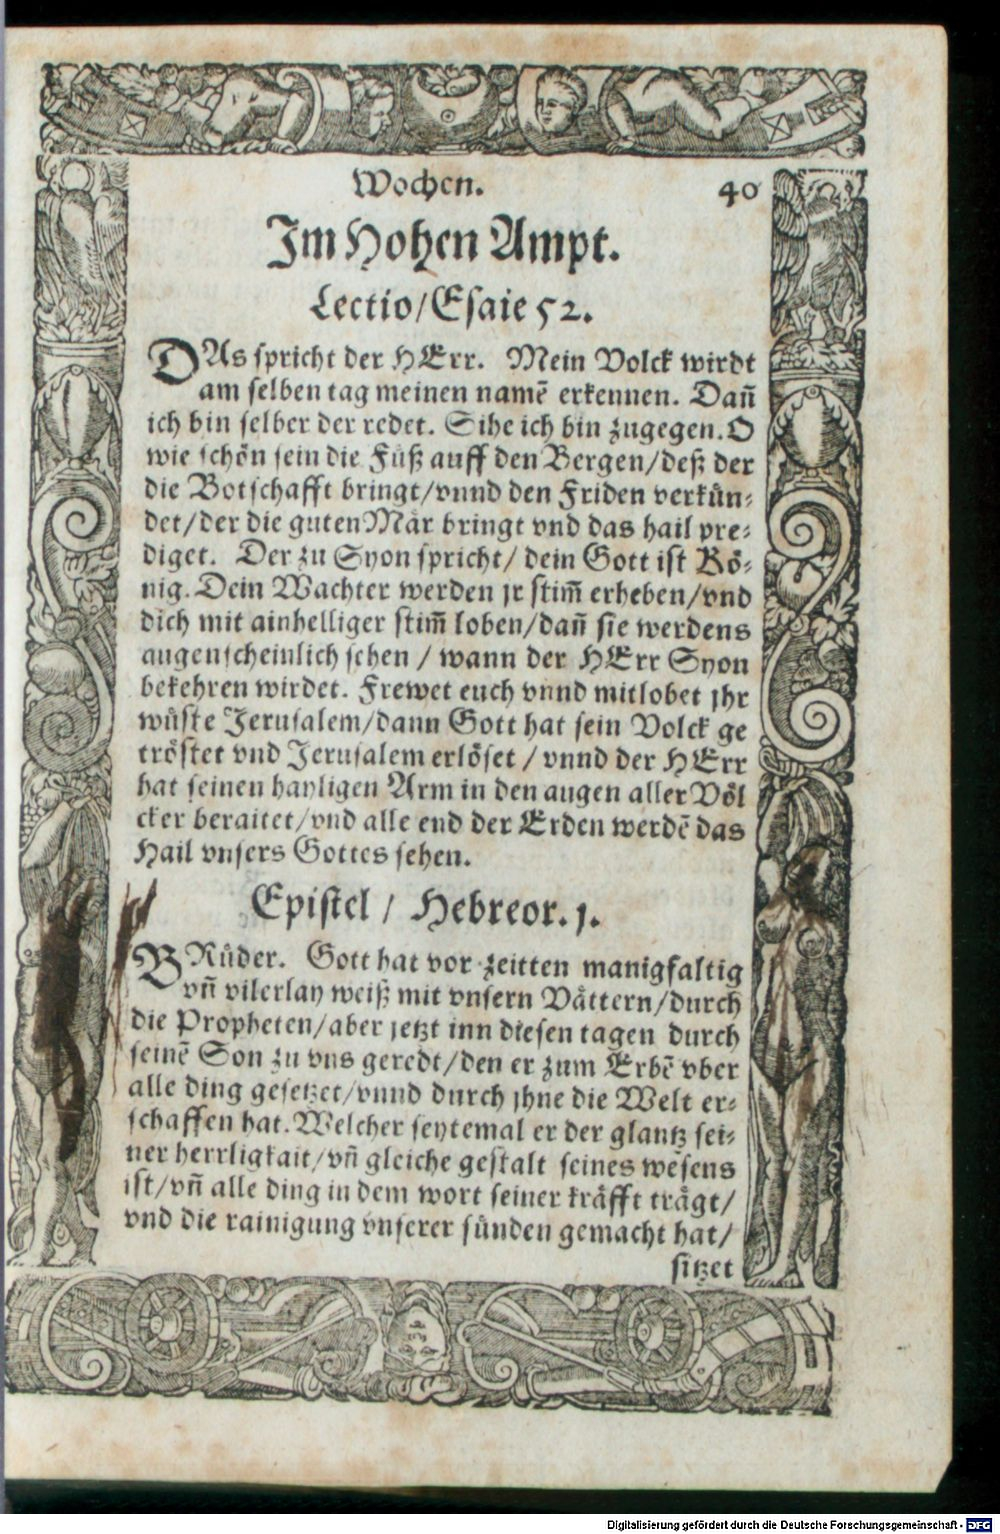 Wochen. 40
Im Hohen Ampt.
Lectio/Esaie 52.
DAs spricht der HErr. Mein Volck wirdt
am selben tag meinen namē erkennen. Dañ
ich bin selber der redet. Sihe ich bin zugegen. O
wie schön sein die Füß auff den Bergen/deß der
die Botschafft bringt/vnnd den Friden verkün⸗
det/der die guten Mär bringt vnd das hail pre⸗
diget. Der zu Syon spricht/ dein Gott ist Kö⸗
nig. Dein Wachter werden jr stim̃ erheben/vnd
dich mit ainhelliger stim̃ loben/dañ sie werdens
augenscheinlich sehen / wann der HErr Syon
bekehren wirdet. Frewet euch vnnd mitlobet jhr
wüste Jerusalem/dann Gott hat sein Volck ge
tröstet vnd Jerusalem erlöset / vnnd der HErr
hat seinen hayligen Arm in den augen aller Völ
cker beraitet/vnd alle end der Erden werdē das
Hail vnsers Gottes sehen.
Epistel / Hebreor. j.
BRůder. Gott hat vor zeitten manigfaltig
vñ vilerlay weiß mit vnsern Vättern/durch
die Propheten/aber jetzt inn diesen tagen durch
seinē Son zu vns geredt/den er zum Erbē vber
alle ding gesetzet/vnnd durch jhne die Welt er⸗
schaffen hat. Welcher seytemal er der glantz sei⸗
ner herrligkait/vñ gleiche gestalt seines wesens
ist/vñ alle ding in dem wort seiner kräfft trägt/
vnd die rainigung vnserer sünden gemacht hat/
sitzet
Digitalisierung gefördert durch die Deutsche Forschungsgemeinschaft - DFG